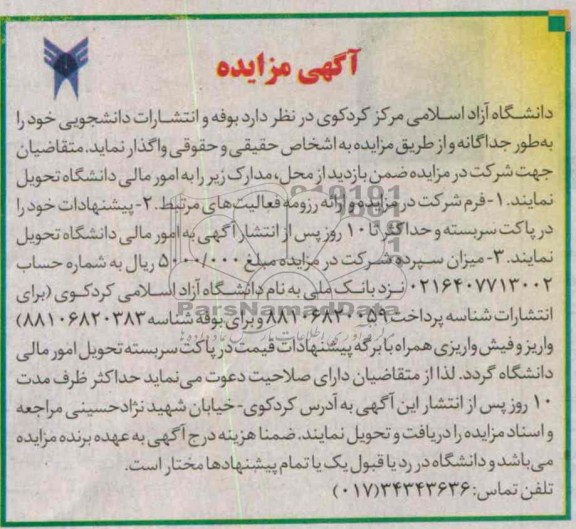 آگهی مزایده
دانشگاه آزاد اسلامی مرکز کردکوی در نظر دارد بوفه و انتشارات دانشجویی خود را
به‌طور جداگانه و از طریق مزایده به اشخاص حقیقی و حقوقی واگذار نماید. متقاضیان
جهت شرکت در مزایده ضمن بازدید از محل، مدارک زیر را به امور مالی دانشگاه تحویل
نمایند. ۱- فرم شرکت در مزایده و ارائه رزومه فعالیت‌های مرتبط. ۲- پیشنهادات خود را
در پاکت سربسته و حداکثر تا ۱۰ روز پس از انتشار آگهی به امور مالی دانشگاه تحویل
نمایند. ۳- میزان سپرده شرکت در مزایده مبلغ ۵۰۰۰/۰۰۰ ریال به شماره حساب
۰۲۱۶۴۰۷۷۱۳۰۰۲ نزد بانک ملی به نام دانشگاه آزاد اسلامی کردکوی (برای
انتشارات شناسه پرداخت ۸۸۱۰۶۸۲۰۰۵۹ و برای بوفه شناسه ۸۸۱۰۶۸۲۰۳۸۳)
واریز و فیش واریزی همراه با برگه پیشنهادات قیمت در پاکت سربسته تحویل امور مالی
دانشگاه گردد. لذا از متقاضیان دارای صلاحیت دعوت می‌نماید حداکثر ظرف مدت
۱۰ روز پس از انتشار این آگهی به آدرس کردکوی- خیابان شهید نژادحسینی مراجعه
و اسناد مزایده را دریافت و تحویل نمایند. ضمنا هزینه درج آگهی به عهده برنده مزایده
می‌باشد و دانشگاه در رد یا قبول یک یا تمام پیشنهادها مختار است.
تلفن تماس: ۳۴۳۴۳۶۳۶(۰۱۷)
ParsNamadData